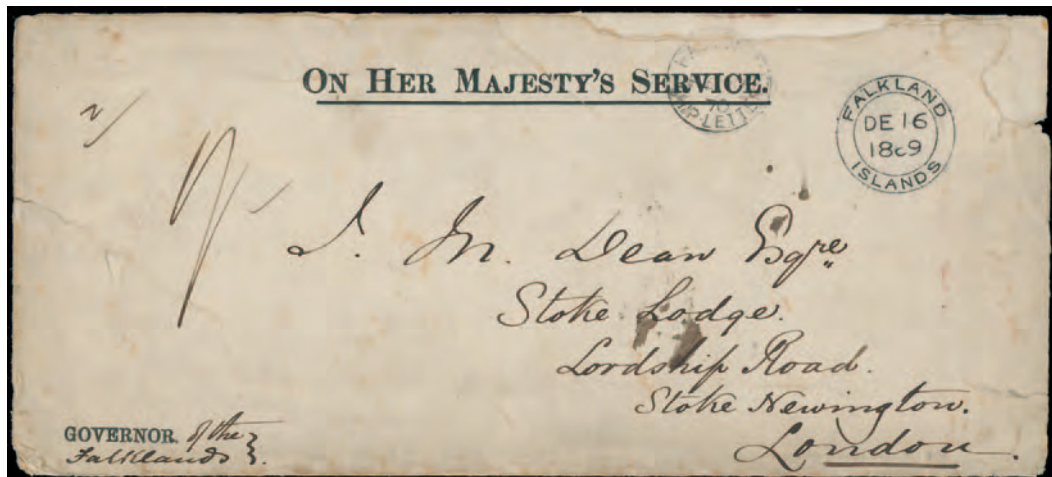 ON HER MAJESTY'S SERVICE.
70
SHIP-LETTER
FALKLAND
DE 16
18c9
ISLANDS
2/
1/-
J. M. Dean Esqre
Stoke Lodge.
Lordship Road.
Stoke Newington.
London.
GOVERNOR of the
Falklands.